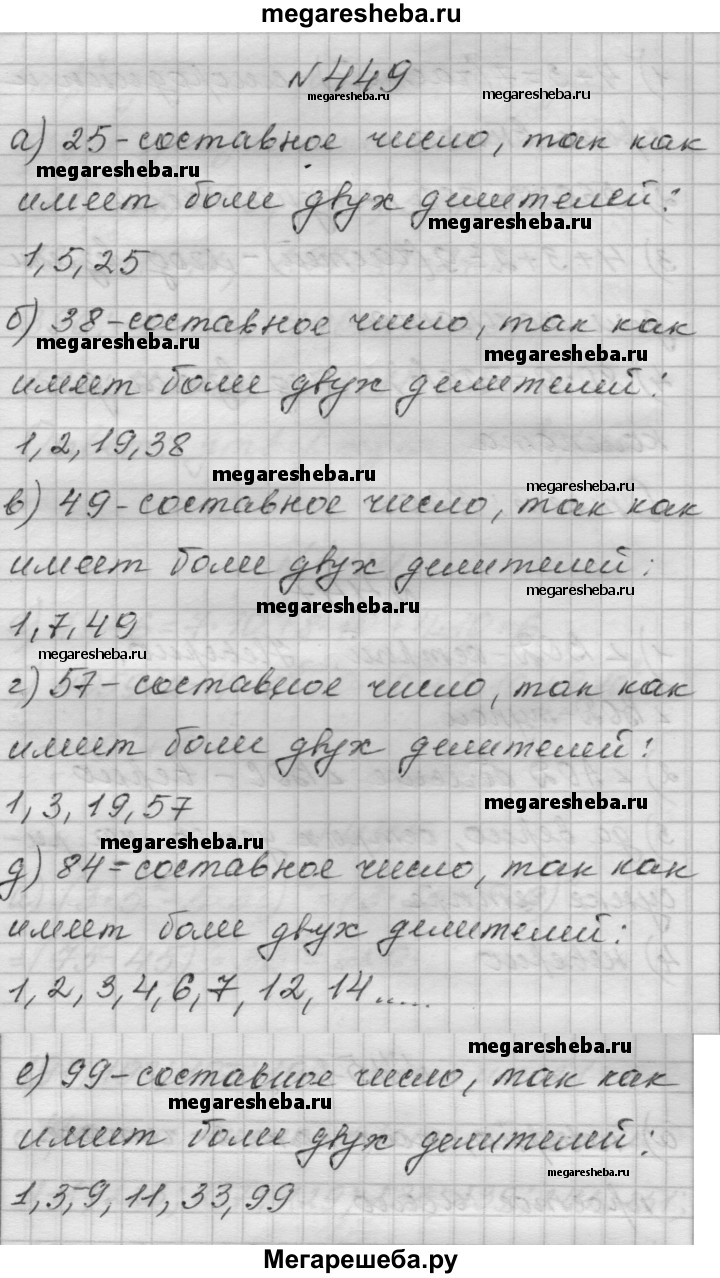 megaresheba.ru
№449
megaresheba.ru
megaresheba.ru
а) 25-составное число, так как
megaresheba.ru
имеет боле двух делителей:
megaresheba.ru
1, 5, 25
б) 38-составное число, так как
megaresheba.ru
megaresheba.ru
имеет боле двух делителей:
1, 2, 19, 38
megaresheba.ru
megaresheba.ru
в) 49-составное число, так как
имеет боле двух делителей:
megaresheba.ru
megaresheba.ru
1, 7, 49
megaresheba.ru
г) 57-составное число, так как
имеет боле двух делителей:
1, 3, 19, 57
megaresheba.ru
megaresheba.ru
д) 84-составное число, так как
имеет боле двух делителей:
1, 2, 3, 4, 6, 7, 12, 14.....
megaresheba.ru
е) 99-составное число, так как
megaresheba.ru
имеет боле двух делителей:
megaresheba.ru
1, 3, 9, 11, 33, 99
Мегарешеба.ру